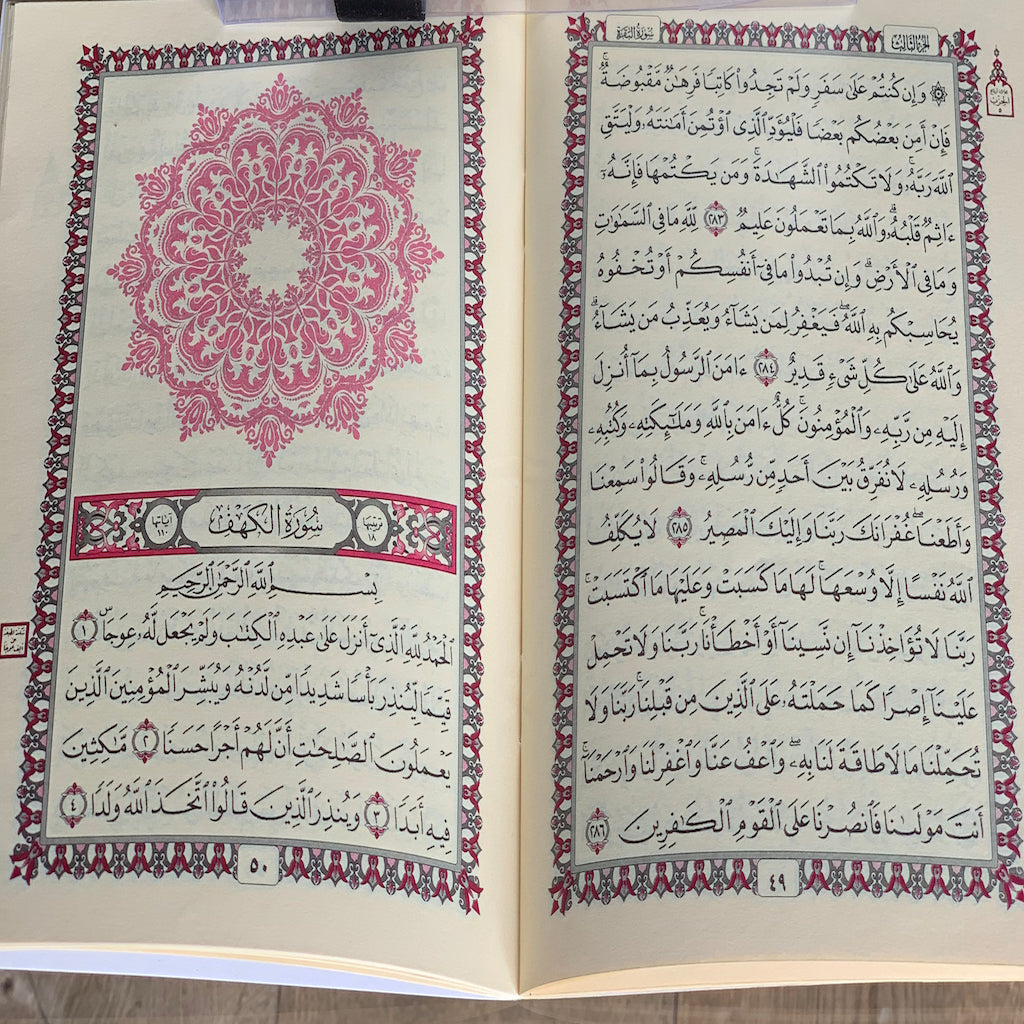 سُورَةُ البَقَرَةِ
الجُزءُ الثَّالِثُ
۞ وَإِن كُنتُمْ عَلَىٰ سَفَرٍ وَلَمْ تَجِدُوا۟ كَاتِبًا فَرِهَٰنٌ مَّقْبُوضَةٌ ۖ
فَإِنْ أَمِنَ بَعْضُكُم بَعْضًا فَلْيُؤَدِّ ٱلَّذِى ٱؤْتُمِنَ أَمَٰنَتَهُۥ وَلْيَتَّقِ
ٱللَّهَ رَبَّهُۥ ۗ وَلَا تَكْتُمُوا۟ ٱلشَّهَٰدَةَ ۚ وَمَن يَكْتُمْهَا فَإِنَّهُۥٓ
ءَاثِمٌ قَلْبُهُۥ ۗ وَٱللَّهُ بِمَا تَعْمَلُونَ عَلِيمٌ ٢٨٣ لِّلَّهِ مَا فِى ٱلسَّمَٰوَٰتِ
وَمَا فِى ٱلْأَرْضِ ۗ وَإِن تُبْدُوا۟ مَا فِىٓ أَنفُسِكُمْ أَوْ تُخْفُوهُ
يُحَاسِبْكُم بِهِ ٱللَّهُ ۖ فَيَغْفِرُ لِمَن يَشَآءُ وَيُعَذِّبُ مَن يَشَآءُ ۗ
وَٱللَّهُ عَلَىٰ كُلِّ شَىْءٍ قَدِيرٌ ٢٨٤ ءَامَنَ ٱلرَّسُولُ بِمَآ أُنزِلَ
إِلَيْهِ مِن رَّبِّهِۦ وَٱلْمُؤْمِنُونَ ۚ كُلٌّ ءَامَنَ بِٱللَّهِ وَمَلَٰٓئِكَتِهِۦ وَكُتُبِهِۦ
وَرُسُلِهِۦ لَا نُفَرِّقُ بَيْنَ أَحَدٍ مِّن رُّسُلِهِۦ ۚ وَقَالُوا۟ سَمِعْنَا
وَأَطَعْنَا ۖ غُفْرَانَكَ رَبَّنَا وَإِلَيْكَ ٱلْمَصِيرُ ٢٨٥ لَا يُكَلِّفُ
ٱللَّهُ نَفْسًا إِلَّا وُسْعَهَا ۚ لَهَا مَا كَسَبَتْ وَعَلَيْهَا مَا ٱكْتَسَبَتْ ۗ
رَبَّنَا لَا تُؤَاخِذْنَآ إِن نَّسِينَآ أَوْ أَخْطَأْنَا ۚ رَبَّنَا وَلَا تَحْمِلْ
عَلَيْنَآ إِصْرًا كَمَا حَمَلْتَهُۥ عَلَى ٱلَّذِينَ مِن قَبْلِنَا ۚ رَبَّنَا وَلَا
تُحَمِّلْنَا مَا لَا طَاقَةَ لَنَا بِهِۦ ۖ وَٱعْفُ عَنَّا وَٱغْفِرْ لَنَا وَٱرْحَمْنَآ ۚ
أَنتَ مَوْلَىٰنَا فَٱنصُرْنَا عَلَى ٱلْقَوْمِ ٱلْكَٰفِرِينَ ٢٨٦
٤٩
ترتيبها ١٨
سُورَةُ الكَهْفِ
آياتها ١١٠
بِسْمِ ٱللَّهِ ٱلرَّحْمَٰنِ ٱلرَّحِيمِ
ٱلْحَمْدُ لِلَّهِ ٱلَّذِىٓ أَنزَلَ عَلَىٰ عَبْدِهِ ٱلْكِتَٰبَ وَلَمْ يَجْعَل لَّهُۥ عِوَجَا ۜ ١
قَيِّمًا لِّيُنذِرَ بَأْسًا شَدِيدًا مِّن لَّدُنْهُ وَيُبَشِّرَ ٱلْمُؤْمِنِينَ ٱلَّذِينَ
يَعْمَلُونَ ٱلصَّٰلِحَٰتِ أَنَّ لَهُمْ أَجْرًا حَسَنًا ٢ مَّٰكِثِينَ
فِيهِ أَبَدًا ٣ وَيُنذِرَ ٱلَّذِينَ قَالُوا۟ ٱتَّخَذَ ٱللَّهُ وَلَدًا ٤
٥٠